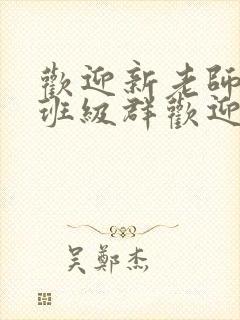 歡迎新老師
班級群歡迎
吴鄭杰